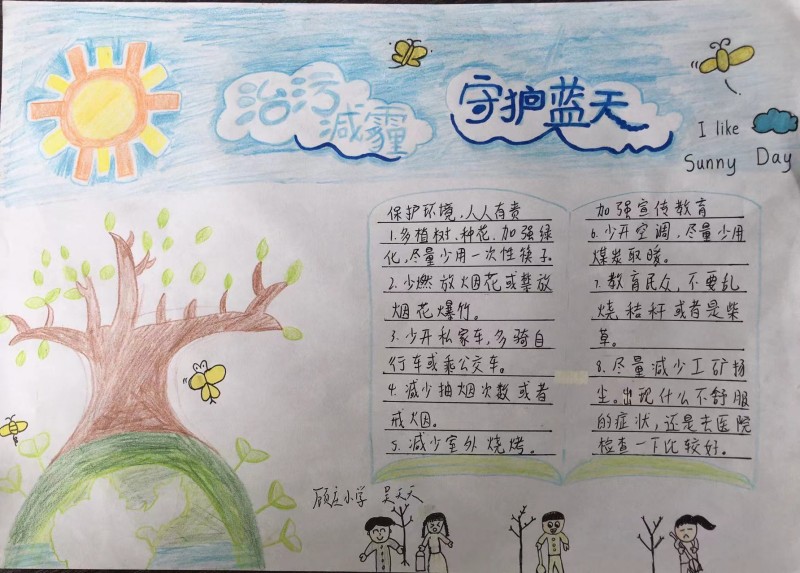 治污
减霾
守护蓝天
I like
Sunny Day
保护环境,人人有责
1.多植树、种花、加强绿
化,尽量少用一次性筷子.
2.少燃放烟花或禁放
烟花爆竹。
3.少开私家车,多骑自
行车或乘公交车。
4.减少抽烟次数或者
戒烟。
5.减少室外烧烤。
加强宣传教育
6.少开空调,尽量少用
煤炭取暖。
7.教育民众,不要乱
烧秸秆或者是柴
草。
8.尽量减少工矿扬
尘。出现什么不舒服
的症状,还是去医院
检查一下比较好。
顾庄小学 吴天天